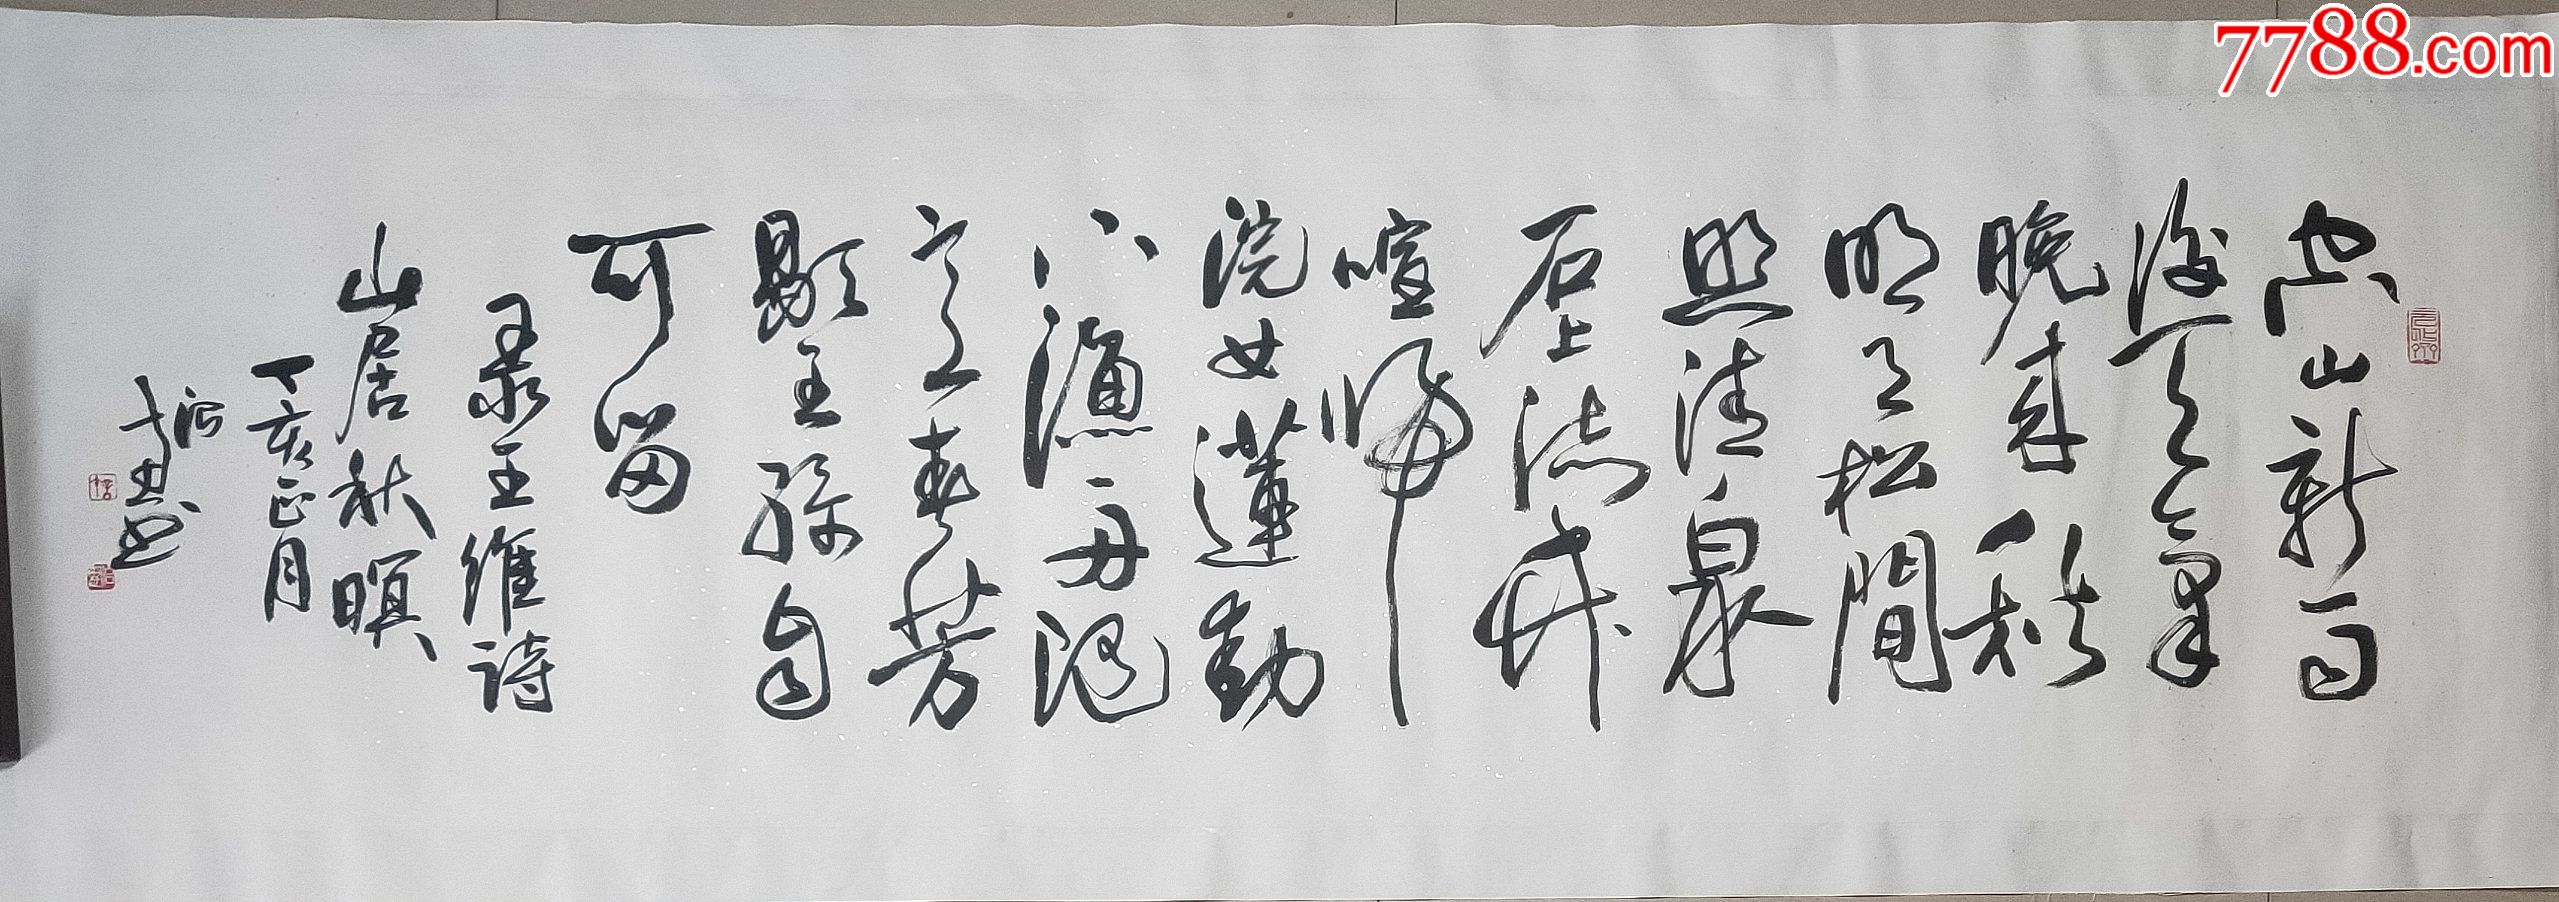 7788.com
空山新雨
後天氣
晚来秋
明月松間
照清泉
石上流竹
喧歸
浣女蓮動
下漁舟随
意春芳
歇王孫自
可留
录王維詩
山居秋暝
丁亥正月